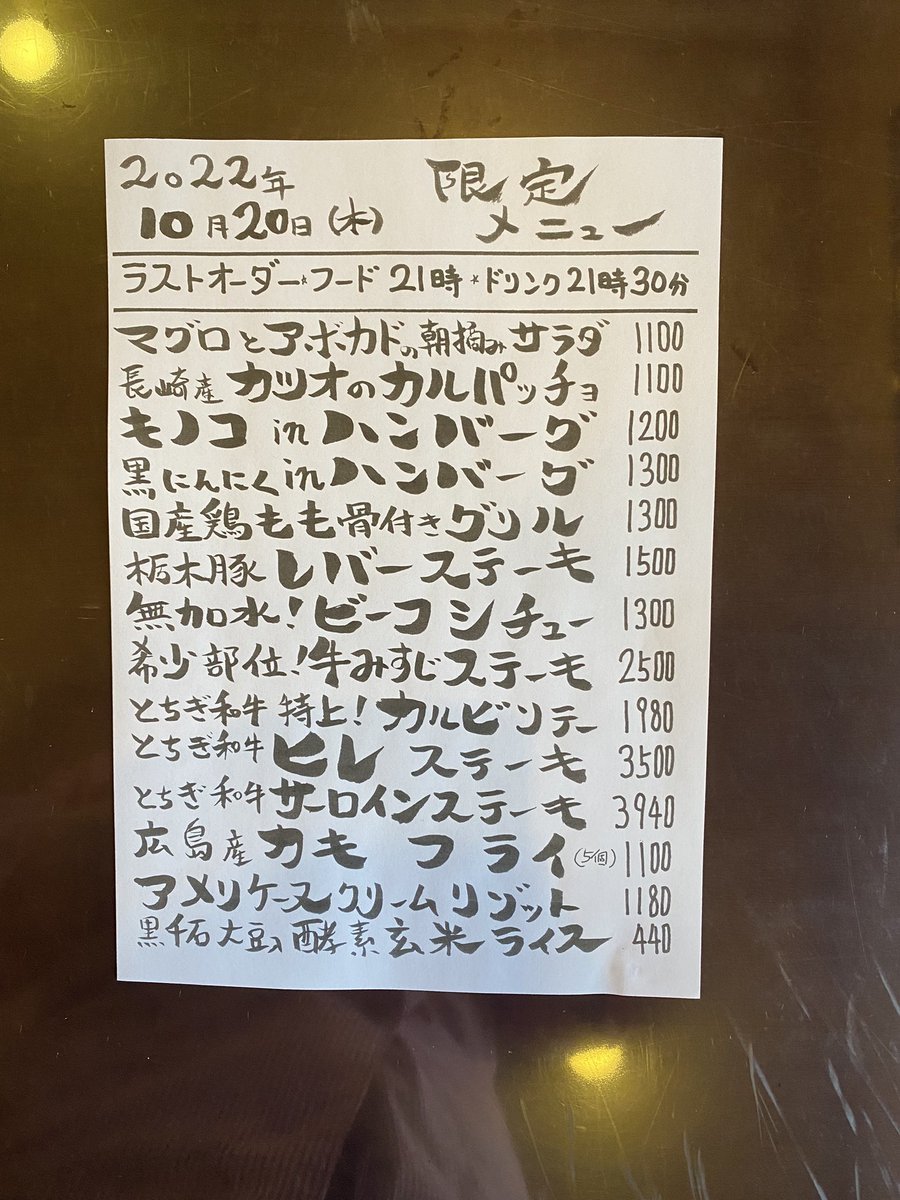 2022年 限定
10月20日(木) メニュー
ラストオーダー*フード 21時 * ドリンク21時30分
マグロとアボカドの朝摘みサラダ 1100
長崎産 カツオのカルパッチョ 1100
キノコ in ハンバーグ 1200
黒にんにく in ハンバーグ 1300
国産鶏もも骨付きグリル 1300
栃木豚 レバーステーキ 1500
無加水!ビーフシチュー 1300
希少部位!牛みすじステーキ 2500
とちぎ和牛 特上!カルビソテー 1980
とちぎ和牛 ヒレステーキ 3500
とちぎ和牛 サーロインステーキ 3940
広島産 カキフライ(5個) 1100
アメリケーヌクリームリゾット 1180
黒千石大豆入酵素玄米ライス 440